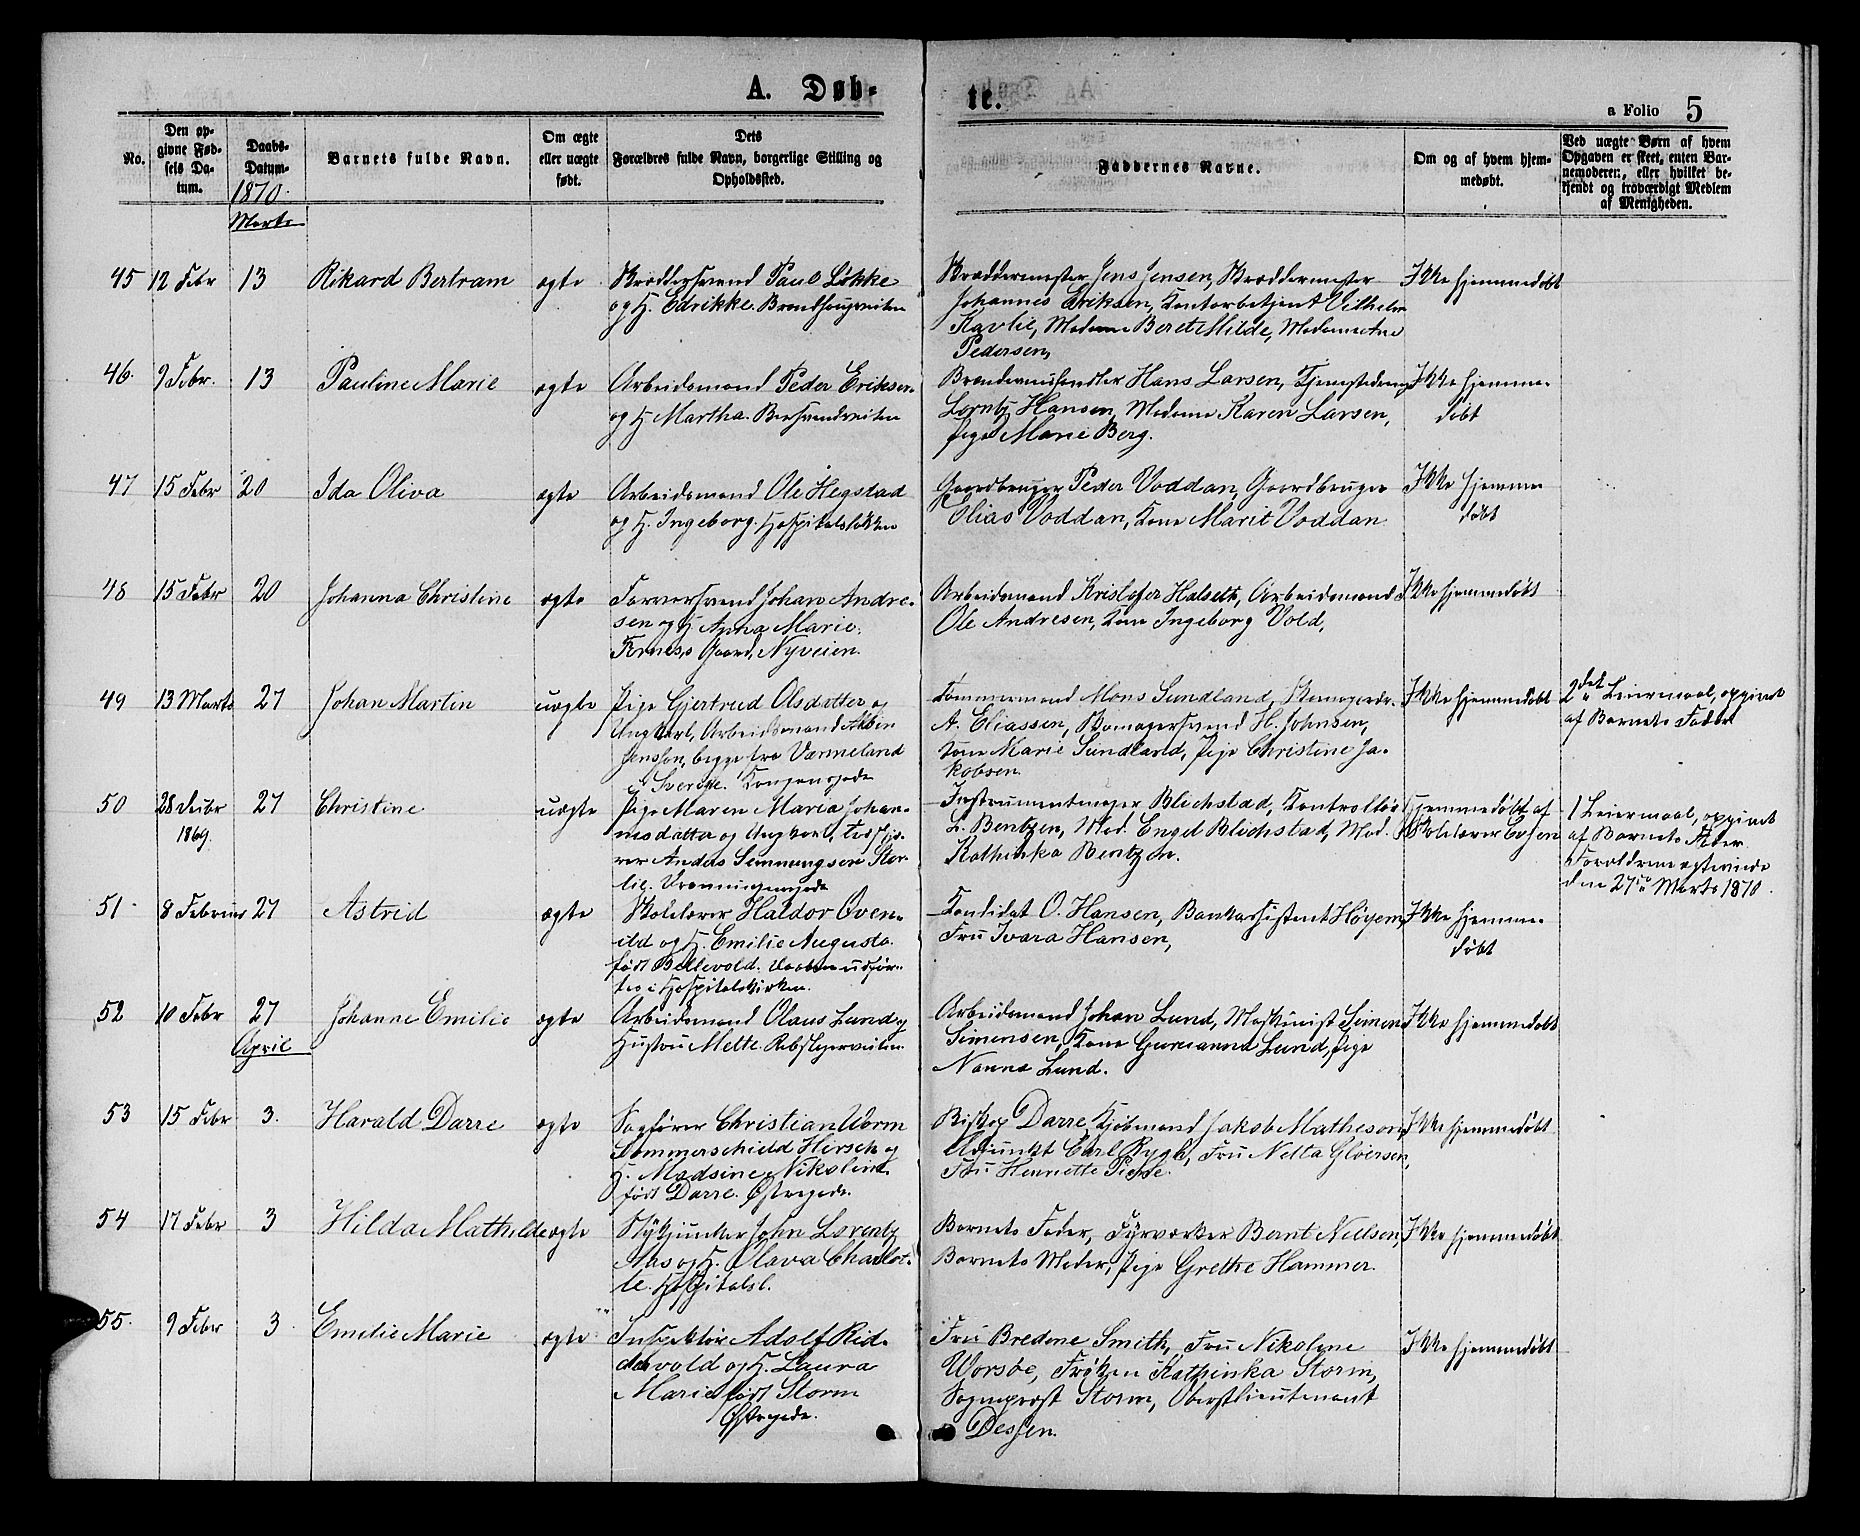 A. Døb-
te.
a Folio 5
No.
Den op-
givne Fød-
sels Da-
tum.
Daabs-
Datum.
1870.
Marts
Barnets fulde Navn.
Om ægte
eller uægte
født.
Dets
Forældres fulde Navn, borgerlige Stilling og
Opholdssted.
Faddernes Navne.
Om og af hvem hjem-
medøbt.
Ved uægte Børn af hvem
Opgaven er skeet, enten Bar-
nemoderen, eller hvilket be-
kjendt og troværdigt Medlem
af Menigheden.
45 12 Febr 13 Rikard Bertram ægte
Skræddersvend Paul Løkke
og H. Edrikke.
Skræddermester Jens Jensen, Skræddermester
Johannes Eriksen, Vilhelm
Kavlie, Madame Beret Milde, Madame Ane
Pedersen,
Ikke hjemmedøbt
46. 9 Febr. 13 Pauline Marie ægte
Arbeidsmand Peder Eriksen
og H. Martha.
Hans Larsen,
Lorntz Hansen, Madame Karen Larsen,
Pige Marie Berg.
Ikke hjemme-
døbt
47 15 Febr 20 Ida Oliva ægte
Arbeidsmand Ole Hegstad
og H. Ingeborg. Hospitalsløkken
Gaardbruger Peder Voddan, Gaardbruger
Elias Voddan, Kone Marit Voddan
Ikke hjemme
døbt
48 15 Febr 20 Johanna Christine ægte
Farversvend Johan Andre-
sen og H. Anna Marie.
Gaard, Nyveien.
Arbeidsmand Kristofer Halseth, Arbeidsmand
Ole Andresen, Kone Ingeborg Vold,
Ikke hjemmedøbt
49 13 Marts 27 Johan Martin uægte
Pige Gjertrud Olsdatter og
Ungkarl, Arbeidsmand
Jensson, begge fra Værmeland
i Sverige. Kongensgade
Tømmermand Mons Sundland,
A. Eliassen, Skomagersvend H. Johnsen,
Kone Marie Sundland, Pige Christine Ja-
kobsen.
Ikke hjemmedøbt
2det Leiermaal, opgivet
af Barnets Fader
50 28 Debr 27 Christine uægte
1869.
Pige Maren Maria Johan-
nesdatter og Ungkarl,
Anders Semmingsen Stor-
lie. Dronningensgade
Instrumentmager Blichstad, Kontrollør
L. Bentzen, Mad. Engel Blichstad, Mad.
Kathinka Bentzen.
Hjemmedøbt af
Skolelærer Evjen
1 Leiermaal, opgivet
af Barnets Fader.
Forældrene ægteviede
den 27de Marts 1870.
51. 8 Februar 27 Astrid ægte
Skolelærer Haldor Oven-
ild og H. Emilie Augusta.
født Bellevold. Daaben udfør-
tes i Hospitalskirken.
Kandidat O. Hansen, Bankassistent Høyem,
Fru Ivara Hansen,
Ikke hjemme-
døbt
52 10 Febr 27 Johanne Emilie ægte
April
Arbeidsmand Olaus Lund og
Hustru Mette. Rebslagerveiten.
Arbeidsmand Johan Lund, Maskinist Simen
Simensen, Kone Gurianna Lund, Pige
Nanna Lund.
Ikke hjemmedøbt
53 15 Febr 3. Harald Darre ægte
Sagfører Christian Worm
Sommerschield Hirsch og
H. Madsine Nikoline
født Darre. Østregade.
Biskop Darre, Kjøbmand Jakob Matheson,
Adjunkt Carl Rygh, Fru Netta Gløersen,
Fru Henriette Piene.
Ikke hjemmedøbt
54 17 Febr 3 Hilda Mathilde ægte
Stykjunker John Lorentz
Aas og H. Olava Charlot-
te. Hospitalsl.
Barnets Fader, Fyrværker Bernt Nielsen,
Barnets Moder, Pige Grethe Hammer.
Ikke hjemmedøbt
55. 9 Febr 3 Emilie Marie ægte
Inspektør Adolf Rid-
dervold og H. Laura
Marie født Storm
Østregade.
Fru Bredene Smith, Fru Nikoline
Worsøe, Frøken Kathinka Storm,
Sogneprest Storm, Oberstlieutenant
Dessen.
Ikke hjemmedøbt